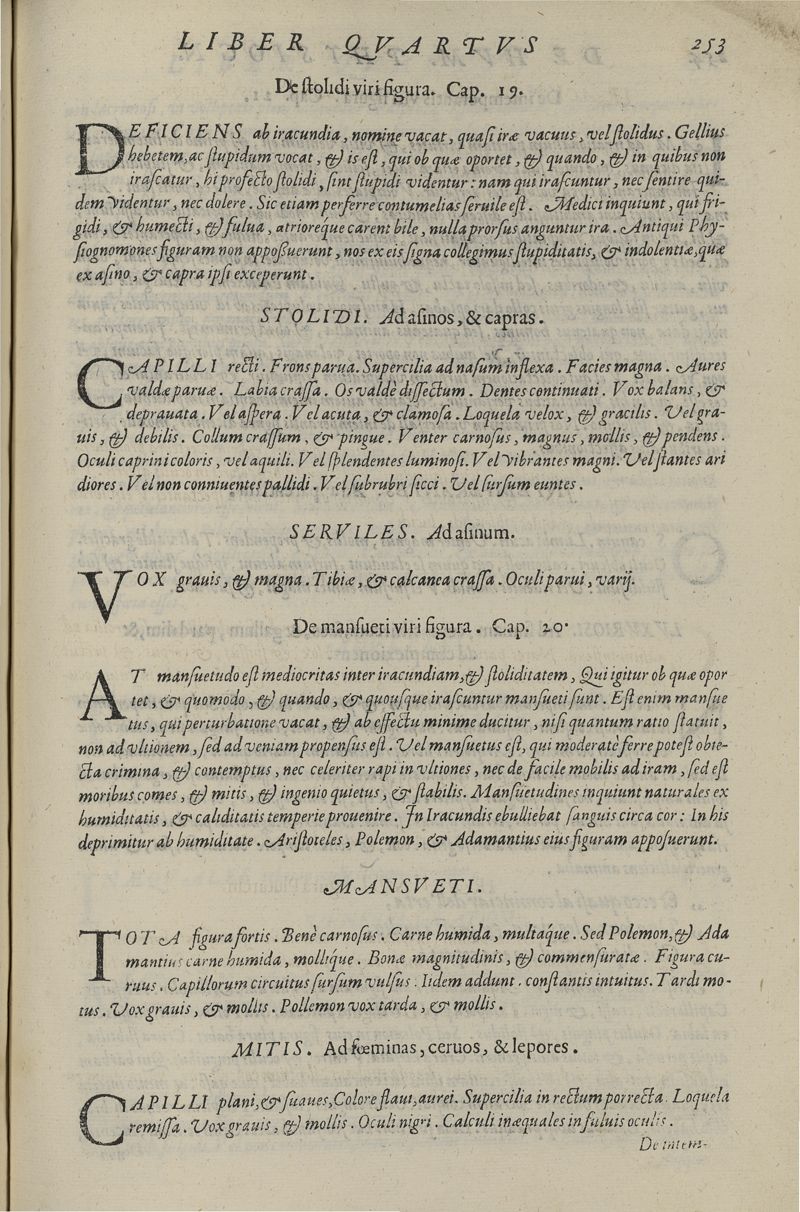 LIBER QVARTVS 253
De ſtolidi viri figura. Cap. 19.
DEFICIENS ab iracundia, nomine vacat, quaſi iræ vacuus, vel ſtolidus. Gellius
hebetem, ac ſtupidum vocat, & is eſt, qui ob quæ oportet, & quando, & in quibus non
iraſcatur, hi profecto ſtolidi, ſint ſtupidi videntur: nam qui iraſcuntur, nec ſentire qui-
dem videntur, nec dolere. Sic etiam perferre contumelias ſeruile eſt. Medici inquiunt, qui fri-
gidi, & humecti, & fulua, atrioreque carent bile, nulla prorſus anguntur ira. Antiqui Phy-
ſiognomones figuram non appoßuerunt, nos ex eis ſigna collegimus ſtupiditatis, & indolentiæ, quæ
ex aſino, & capra ipſi exceperunt.
STOLIDI. Ad aſinos, & capras.
CAPILLI recti. Frons parua. Supercilia ad naſum inflexa. Facies magna. Aures
valdæ paruæ. Labia craſſa. Os valdè diſſectum. Dentes continuati. Vox balans, &
deprauata. Vel aſpera. Vel acuta, & clamoſa. Loquela velox, & gracilis. Vel gra-
uis, & debilis. Collum craſſum, & pingue. Venter carnoſus, magnus, mollis, & pendens.
Oculi caprini coloris, vel aquili. Vel ſplendentes luminoſi. Vel vibrantes magni. Vel ſtantes ari
diores. Vel non conniuentes pallidi. Vel ſubrubri ſicci. Vel ſurſum euntes.
SERVILES. Ad aſinum.
VOX grauis, & magna. Tibiæ, & calcanea craſſa. Oculi parui, varij.
De manſueti viri figura. Cap. 20.
AT manſuetudo eſt mediocritas inter iracundiam, & ſtoliditatem, Qui igitur ob quæ opor
tet, & quomodo, & quando, & quouſque iraſcuntur manſueti ſunt. Eſt enim manſue
tus, qui perturbatione vacat, & ab effectu minime ducitur, niſi quantum ratio ſtatuit,
non ad vltionem, ſed ad veniam propenſus eſt. Vel manſuetus eſt, qui moderatè ferre poteſt obie-
cta crimina, & contemptus, nec celeriter rapi in vltiones, nec de facile mobilis ad iram, ſed eſt
moribus comes, & mitis, & ingenio quietus, & ſtabilis. Manſuetudines inquiunt naturales ex
humiditatis, & caliditatis temperie prouenire. In Iracundis ebulliebat ſanguis circa cor: In his
deprimitur ab humiditate. Ariſtoteles, Polemon, & Adamantius eius figuram appoſuerunt.
MANSVETI.
TOTA figura fortis. Benè carnoſus. Carne humida, multaq́ue. Sed Polemon, & Ada
mantius carne humida, molliq́ue. Bonæ magnitudinis, & commenſuratæ. Figura cu-
ruus. Capillorum circuitus ſurſum vulſus. Iidem addunt. conſtantis intuitus. Tardi mo-
tus. Vox grauis, & mollis. Pollemon vox tarda, & mollis.
MITIS. Ad fœminas, ceruos, & lepores.
CAPILLI plani, & ſuaues, Colore flaui, aurei. Supercilia in rectum porrecta. Loquela
remiſſa. Vox grauis, & mollis. Oculi nigri. Calculi inæquales in fuluis oculis.
De intem-